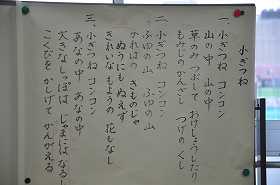 小ぎつね
一、小ぎつね コンコン
山の中 山の中
草のみ つぶして おけしょうしたり
もみじの かんざし つげのくし
二、小ぎつね コンコン
ふゆの山 ふゆの山
かれはの きものじゃ
ぬうにも ぬえず
きれいな もようの 花もなし
三、小ぎつね コンコン
あなの中 あなの中
大きなしっぽは じゃまには なるし
こくびを かしげて かんがえる